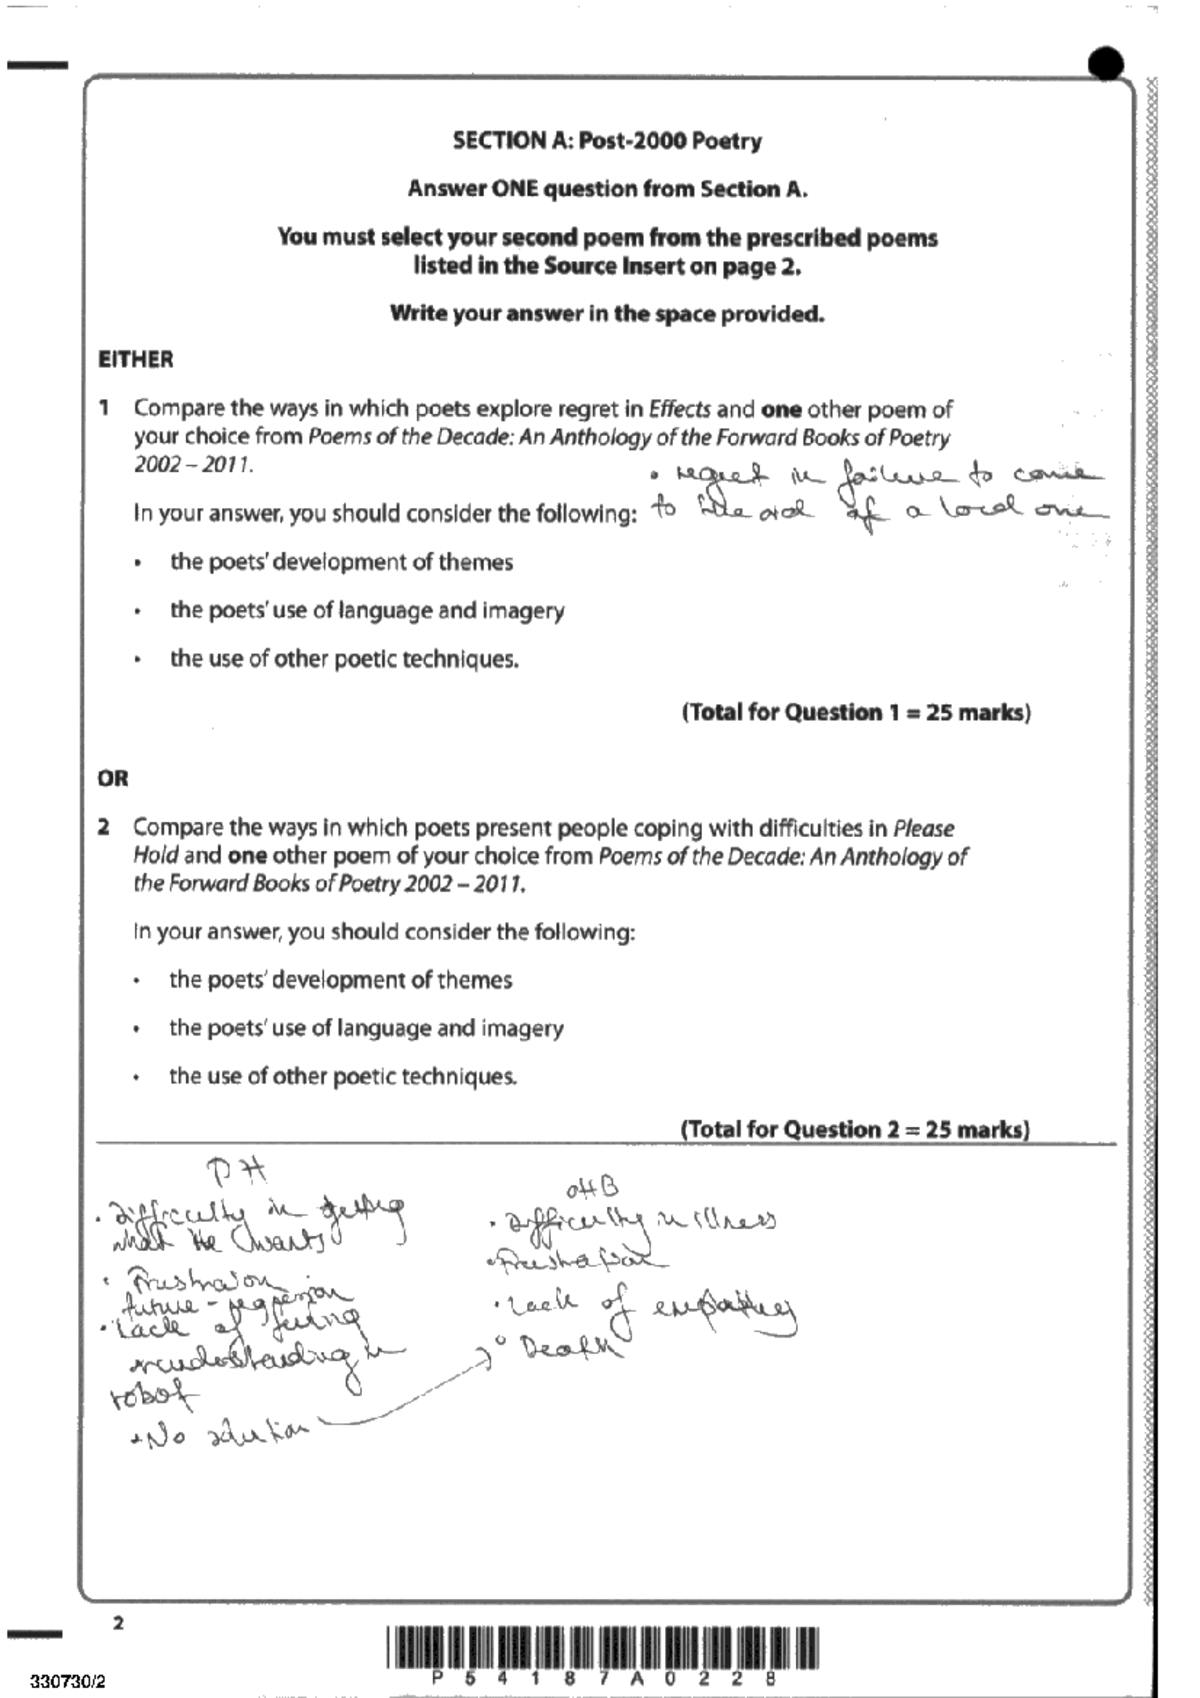 SECTION A: Post-2000 Poetry
Answer ONE question from Section A.
You must select your second poem from the prescribed poems
listed in the Source Insert on page 2.
Write your answer in the space provided.
EITHER
1 Compare the ways in which poets explore regret in Effects and one other poem of
your choice from Poems of the Decade: An Anthology of the Forward Books of Poetry
2002 – 2011.
• regret in failure to come
In your answer, you should consider the following:
to the aid of a loved one
• the poets' development of themes
• the poets' use of language and imagery
• the use of other poetic techniques.
(Total for Question 1 = 25 marks)
OR
2 Compare the ways in which poets present people coping with difficulties in Please
Hold and one other poem of your choice from Poems of the Decade: An Anthology of
the Forward Books of Poetry 2002 – 2011.
In your answer, you should consider the following:
• the poets' development of themes
• the poets' use of language and imagery
• the use of other poetic techniques.
(Total for Question 2 = 25 marks)
PH
• Difficulty in getting
what he wants
• Frustration
future -
• Lack of
understanding in
robot
• No solution
OHB
• Difficulty in illness
• Frustration
• Lack of empathy
• Death
2
P54187A0228
330730/2